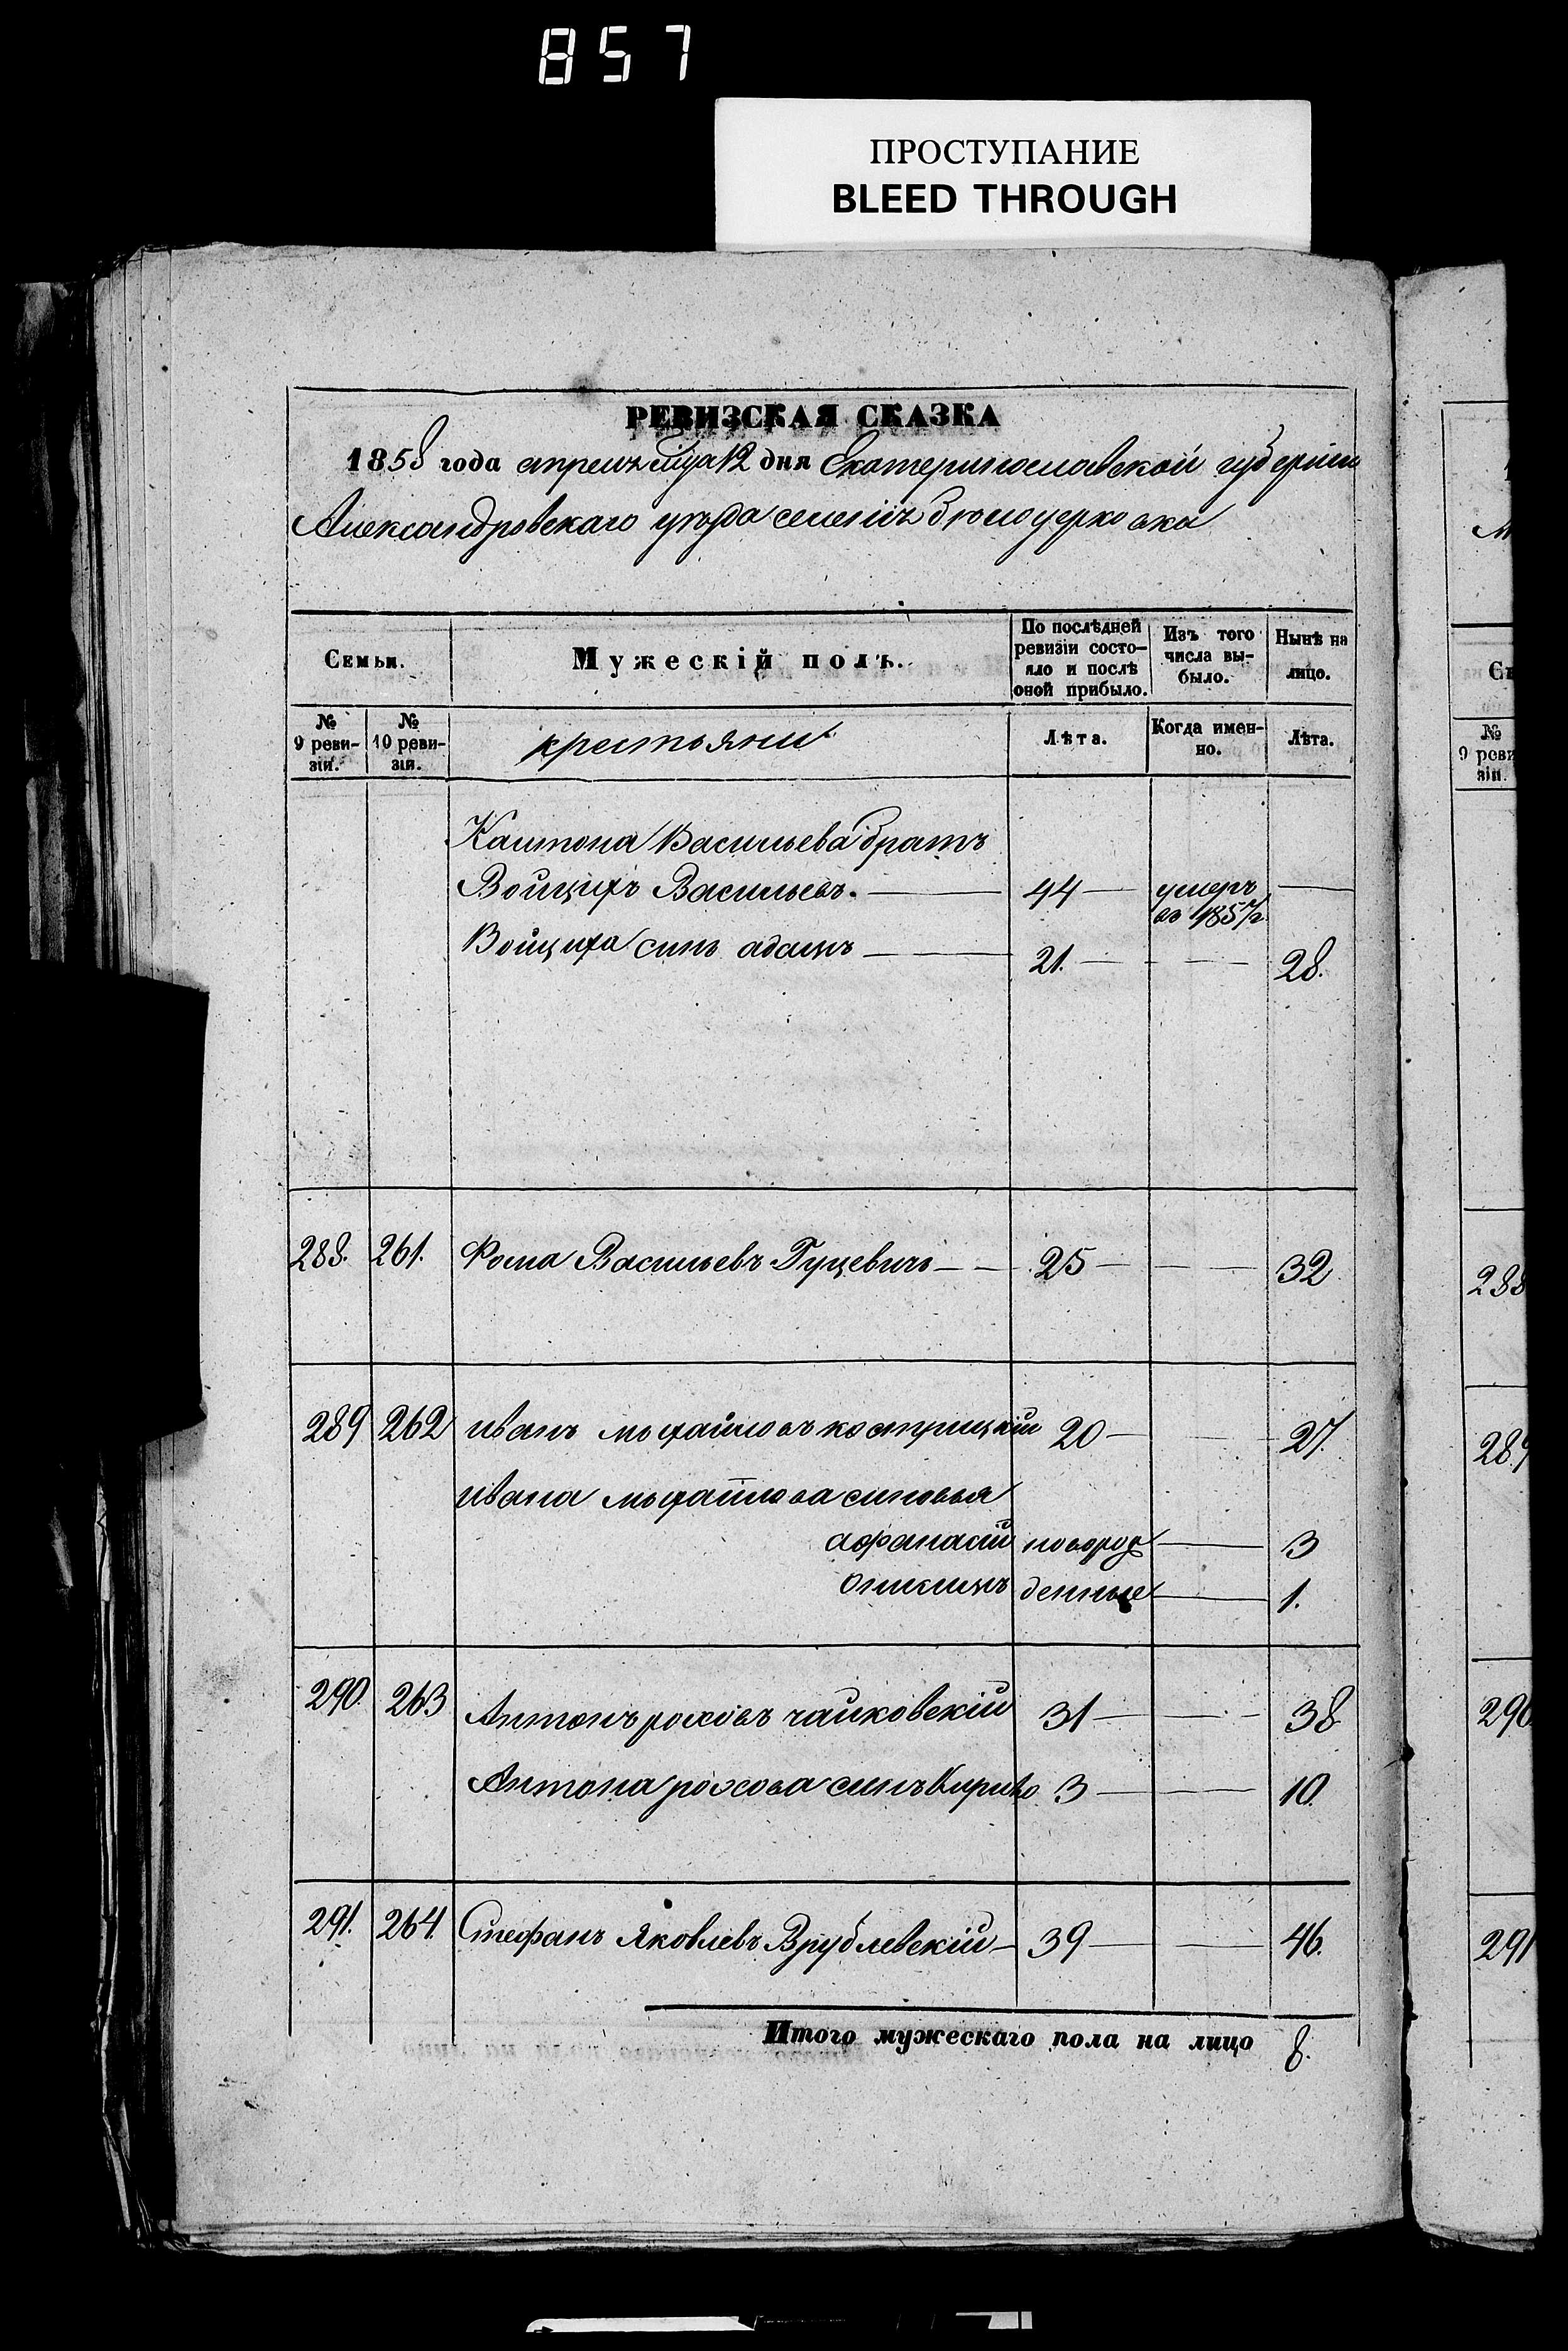 857
ПРОСТУПАНИЕ
BLEED THROUGH
РЕВИЗСКАЯ СКАЗКА
1858 года апреля мца 12 дня Екатеринославской губернiи
Александровскаго уезда
Семьи.
Мужескій полъ.
По послѣдней ревизіи состояло и послѣ оной прибыло.
Изъ того числа выбыло.
Нынѣ на лицо.
№ 9 ревизіи.
№ 10 ревизіи.
крестьяни
Лѣта.
Когда именно.
Лѣта.
Васильева братъ
Войцихъ Васильевъ. 44 умеръ въ 1857 г.
Войциха синъ адамъ 21. 28.
288. 261. Фома Васильевъ Гуцевичъ 25 32
289 262 иванъ мыхайловъ кострицкій 20 27.
ивана мыхайлова синовья
афанасій новорож 3
денные 1.
290 263 Антонъ роховъ чайковскій 31 38
Антона рохова синъ Кирило 3 10.
291. 264. Стефанъ Яковлевъ Врублевскій 39 46.
Итого мужескаго пола на лицо 8.
С
№
9 реви
зіи.
288
289
290
291